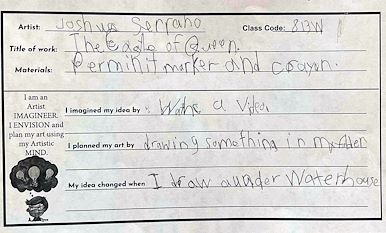 Artist: Joshua Serrano Class Code: 813W
Title of work: The of Queen.
Materials: Perminit marker and crayon.
I am an
Artist
IMAGINEER.
I ENVISION and
plan my art using
my Artistic
MIND.
I imagined my idea by : a Video
I planned my art by drawing something in my
My idea changed when I draw a Waterhouse